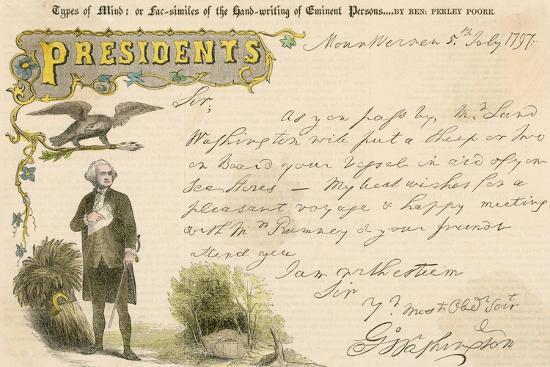 Types of Mind: or Fac-similes of the Hand-writing of Eminent Persons....BY BEN: PERLEY POORE.
PRESIDENTS
Mount Vernon 5.th July 1797.
Sir,
As you pass by, Mr Lund
Washington will put a Sheep or Two
on Board your Vessel in aid of your
Sea Stores — My best wishes for a
pleasant voyage & happy meeting
with Mrs Rumney & your friends
attend you
I am with esteem
Sir
Yr. most Obedt Servt
Go Washington